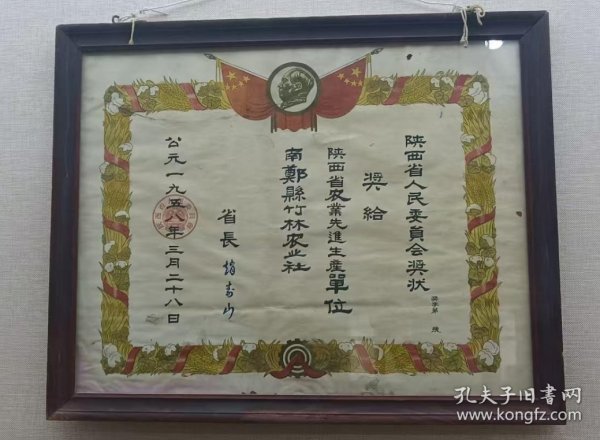 陕西省人民委員会奖状
奖字第 号
奖给
陕西省农業先進生產單位
南鄭縣竹林农业社
省長 趙寿山
公元一九五八年三月二十八日
孔夫子旧书网
www.kongfz.com